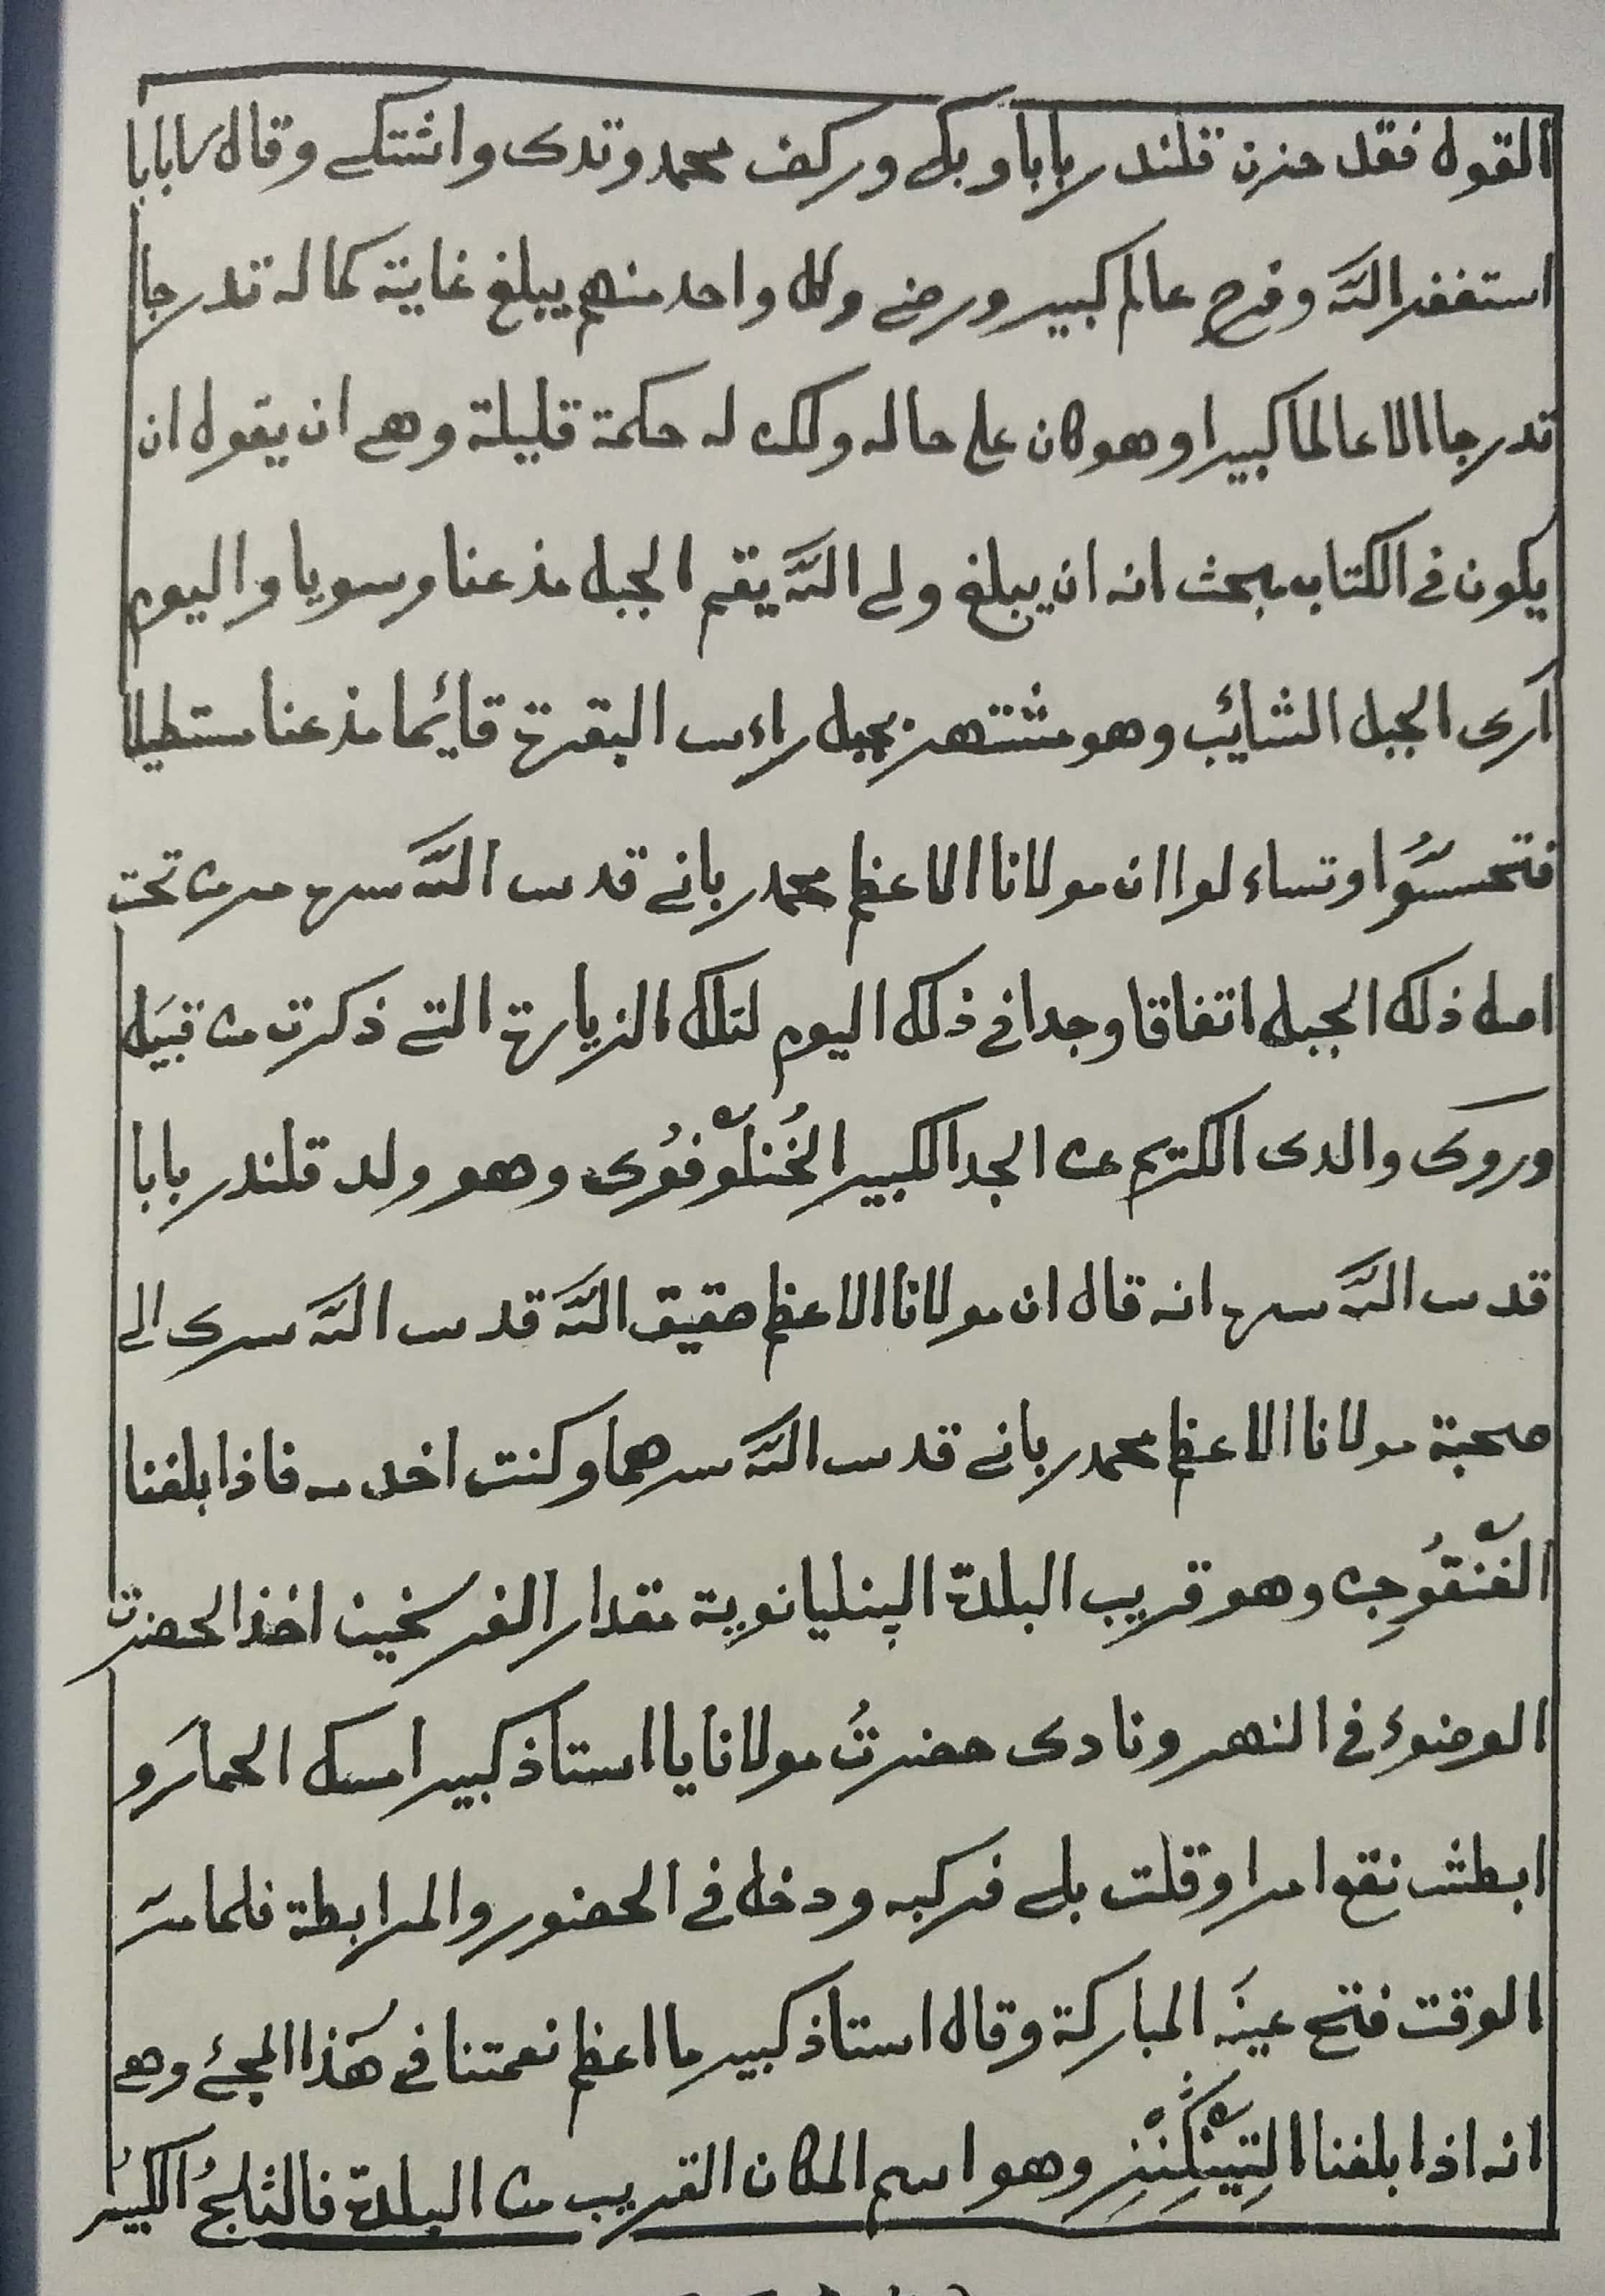 القول فقد حزن قلندر بابا وبكے وركض محمد وتدى واشتكے وقال بابا
استغفر اللّه وفرح عالم كبير ورضے وكل واحد منهم يبلغ غاية كماله تدرجا
تدرجا الا عالما كبيرا وهو كان على حاله ولكن له حكمة قليلة وهے ان يقول ان
يكون فے الكتاب بحث انه ان يبلغ ولے اللّه يقم الجبل مذعنا وسويا واليوم
آرى الجبل الشائب وهو مشتهر بجبل راءس البقرة قائما مذعنا مستطيلا
فتحسسَّوا وتساءلوا ان مولانا الاعظم محمد ربانے قدس اللّه سره مر من تحت
اصل ذلك الجبل اتفاقا وجدا فے ذلك اليوم لتلك الزيارة التے ذكرت من قبيَل
وروى والدى الكريم عن الجد الكبير الخُنلْوفوُى وهو ولد قلندر بابا
قدس اللّه سره انه قال ان مولانا الاعظم حقيق اللّه قدس اللّه سرى الى
صحبة مولانا الاعظم محمد ربانے قدس اللّه سرهما وكنت اخدمه فاذا بلغنا
الغْنقوُجِے وهو قريب البلدة الپنليانوية مقدار الفرسخين اخذ الحضرت
الوضوء فے النهر ونادى حضرتُ مولانا يا استاذ كبير امسك الحمارَ و
ابطش نقع امرا وقلت بلے فركبه ودخل فے الحضور والمرابطة فلما مرّ
الوقت فتح عينَه المباركة وقال استاذ كبير ما اعظم نعمتنا فے هَذا المجئ وهے
انه اذا بلغنا وهو اسم المكان القريب من البلدة فالثلجُ الكبيرُ